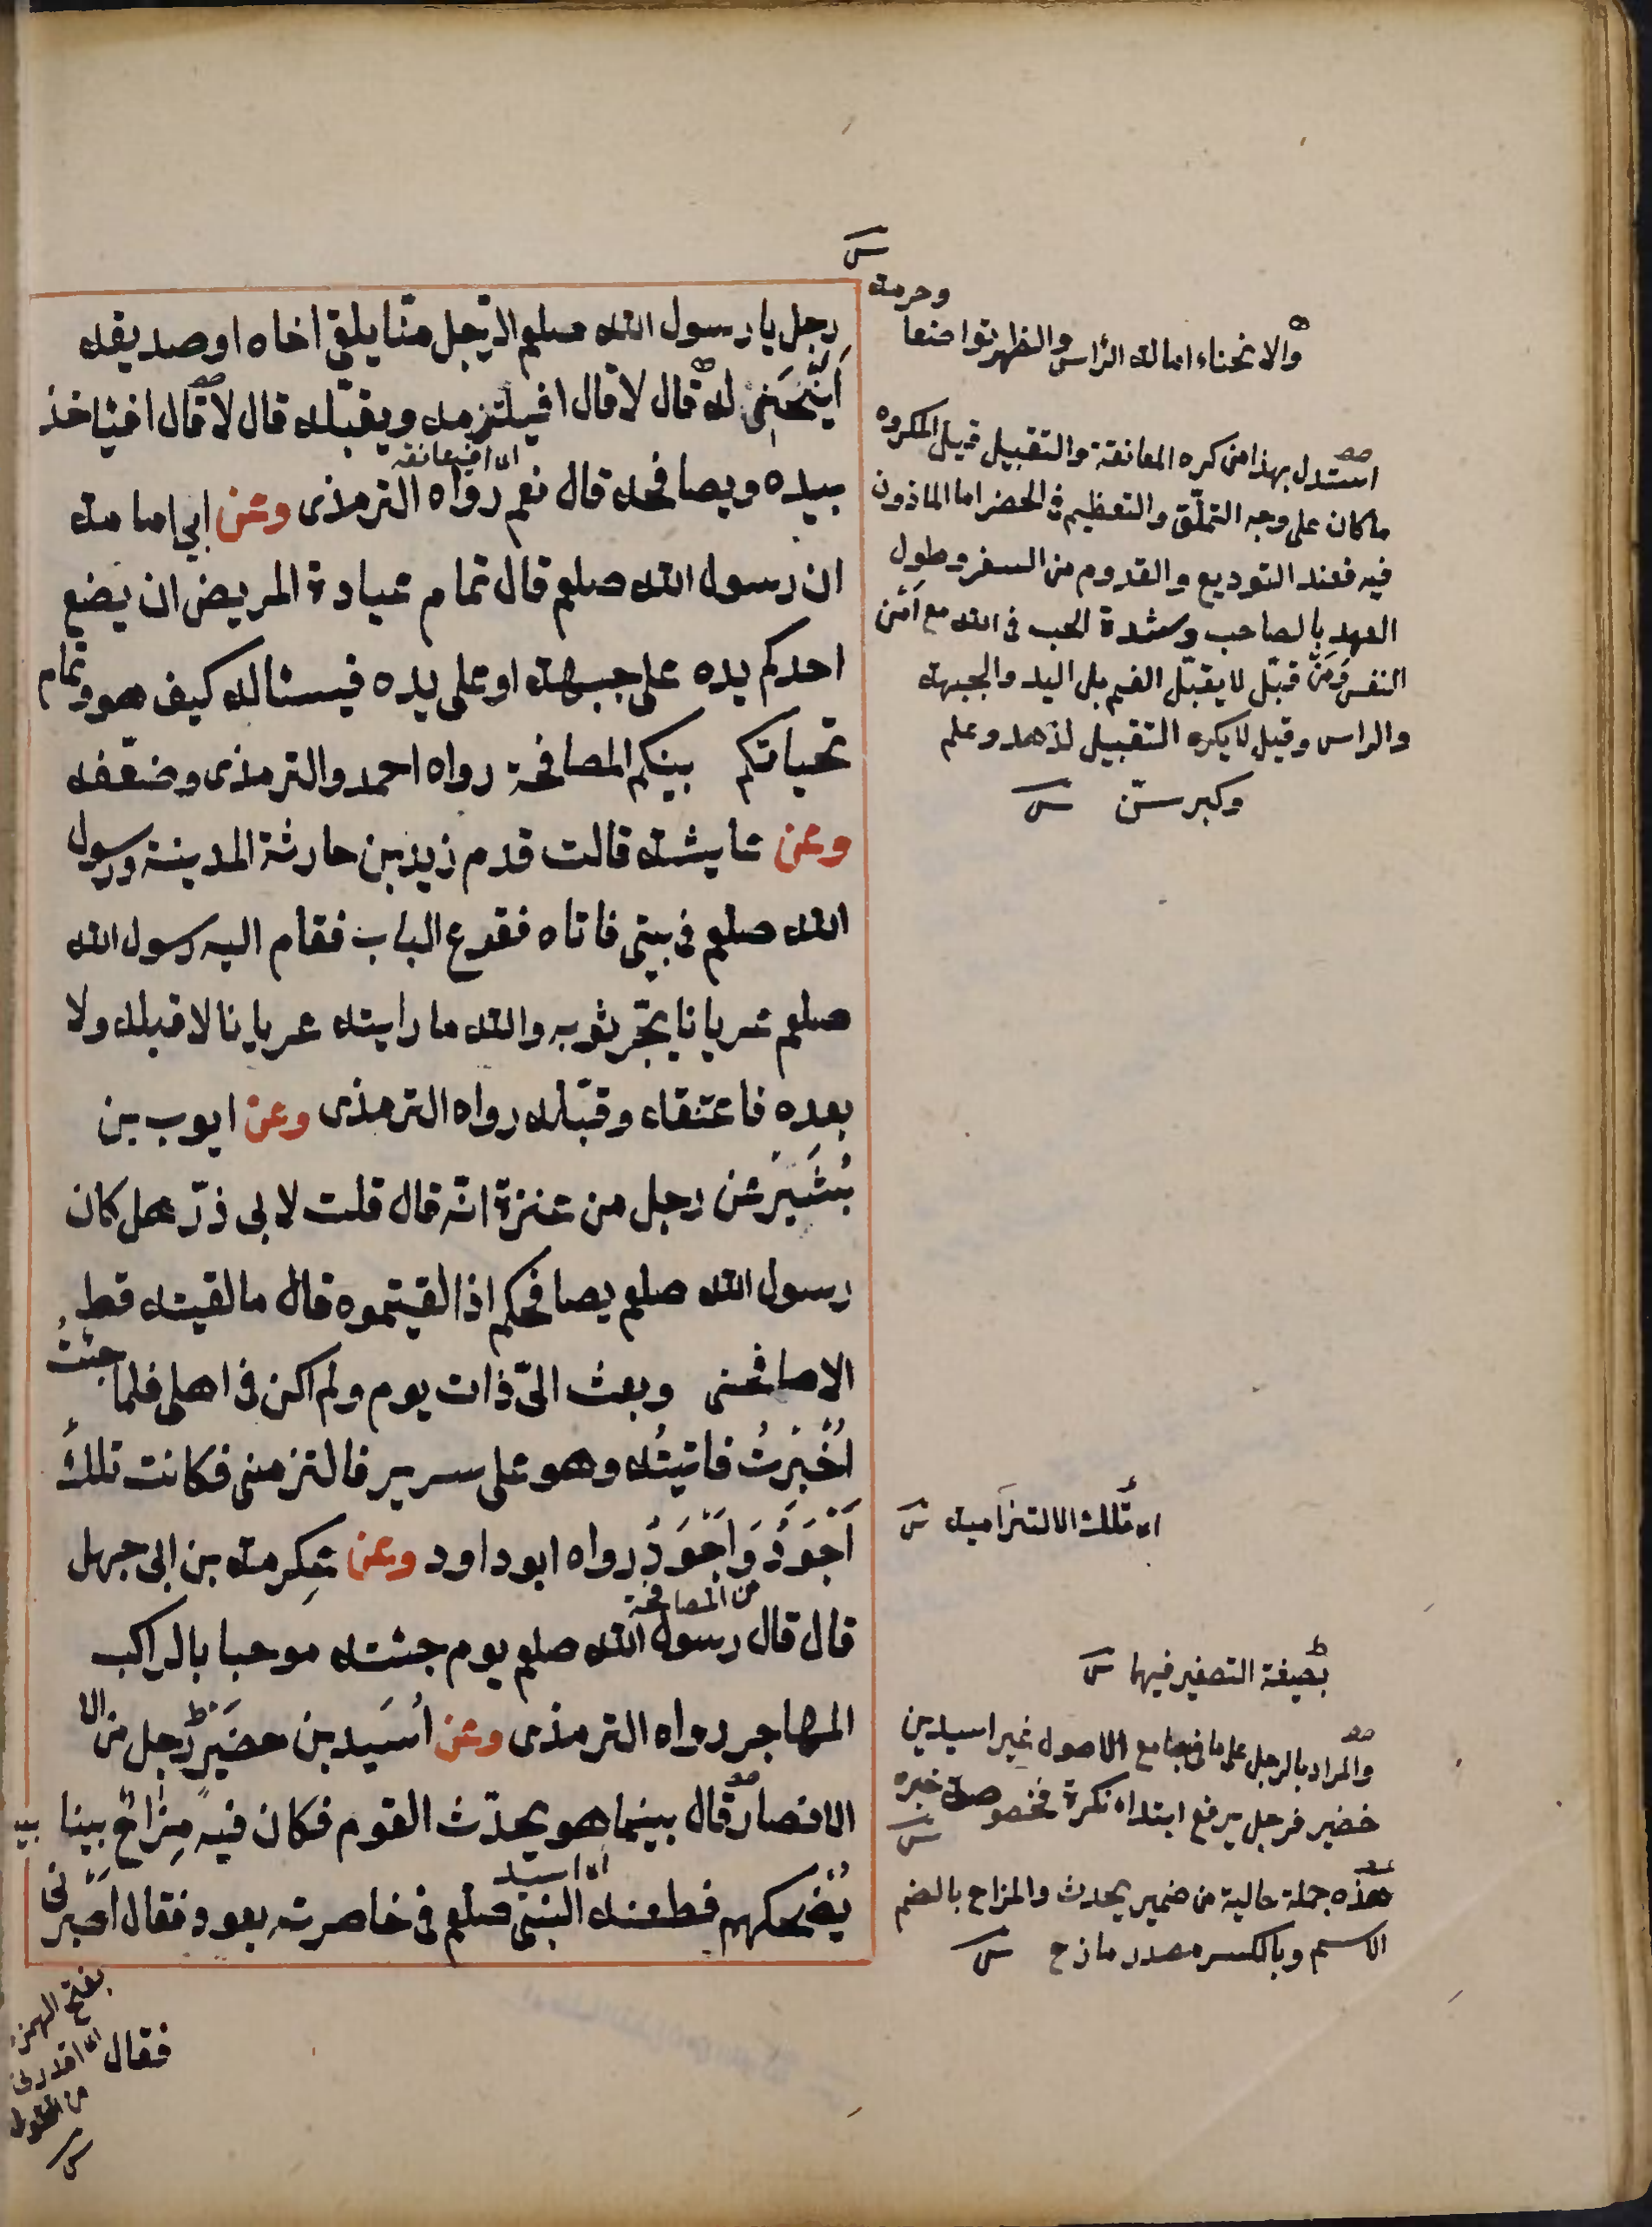 رجل يا رسول الله صلعم الرّجل منّا يلقى اخاه او صديقه
أينحنى له قال لا قال افيلتزمه ويقبّله قال لا قال افياخذ
اى افيعانقه
بيده ويصافحه قال نعم رواه الترمذى وعن ابي امامة
ان رسول الله صلعم قال تمام عيادة المريض ان يضع
احدكم يده على جبهته او على يده فيسئاله كيف هو وتمام
تحياتكم بينكم المصافحة رواه احمد والترمذى وضعّفه
وعن عايشة قالت قدم زيد بن حارثة المدينة ورسول
الله صلعم فى بيتى فاتاه فقرع الباب فقام اليه رسول الله
صلعم عريانا يجرّ ثوبه والله ما رايته عريانا لا قبله ولا
بعده فاعتنقه وقبّله رواه الترمذى وعن ايوب بن
بُشَير عن رجل من عنزة انّه قال قلت لابى ذرّ هل كان
رسول الله صلعم يصافحكم اذا لقيتموه قال ما لقيته قط
الا صافحنى وبعث الىّ ذات يوم ولم اكن فى اهلى فلما جئتُ
اُخْبِرْتُ فاتيتُه وهو على سرير فالتزمنى فكانت تلك
اَجْوَدَ وَاَجْوَدَ رواه ابو داود وعن عِكرمة بن ابى جهل
من المصافحة
قال قال رسول الله صلعم يوم جئته مرحبا بالراكب
المهاجر رواه الترمذى وعن اُسَيد بن حضَير رجل من الا
الانصار قال بينما هو يحدّث القوم فكان فيه مِزاح بينا
اى اسيد
يُضْحكهم فطعنه النبى صلعم فى خاصرته بعود فقال اَصْبِرْنى
فقال
بفتح الهمزة
اى اقدرنى
من
وحرمة
والانحناء امالة الرّاس والظهر تواضعا
استدل بهذا من كره المعانقة والتقبيل قيل المكروه
ما كان على وجه التملّق والتعظيم فى الحضر اما الماذون
فيه فعند التوديع والقدوم من السفر وطول
العهد بالصاحب وشدة الحب فى الله مع اَمْن
النفس وَمَنْ قبّل لا يقبّل الفم بل اليد والجبهة
والراس وقيل لا يكره التقبيل لزهد وعلم
وكبر سنّ
اى تلك الالتزامية
بصيغة التصغير فيهما
والمراد بالرجل على ما فى جامع الاصول غير اسيد بن
حضير فرجل يرفع ابتداء نكرة مخصوصة خبره
هذه جملة حالية من ضمير يحدث والمزاح بالضم
الاسم وبالكسر مصدر مازح